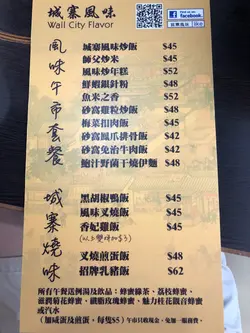 城寨風味
Wall City Flavor
Find us on
facebook.
風味午市套餐
城寨風味炒飯 $45
師父炒米 $45
風味炒年糕 $52
鮮蝦銀針粉 $48
魚米之香 $52
砂窩雞粒炒飯 $48
梅菜扣肉飯 $45
砂窩鳳爪排骨飯 $48
砂窩免治牛肉飯 $48
鮑汁野菌干燒伊麵 $48
城寨燒味
黑胡椒鴨飯 $45
風味叉燒飯 $45
香妃雞飯 $45
(以上雙拼加$3)
叉燒煎蛋飯 $48
招牌乳豬飯 $62
所有午餐送例湯及飲品：蜂蜜綠茶、荔枝蜂蜜、
滋潤菊花蜂蜜、纖脂玫瑰蜂蜜、魅力桂花銀合蜂蜜
或汽水
(加鹹蛋及煎蛋，每隻$5) 午市只收現金，免加一服務費。